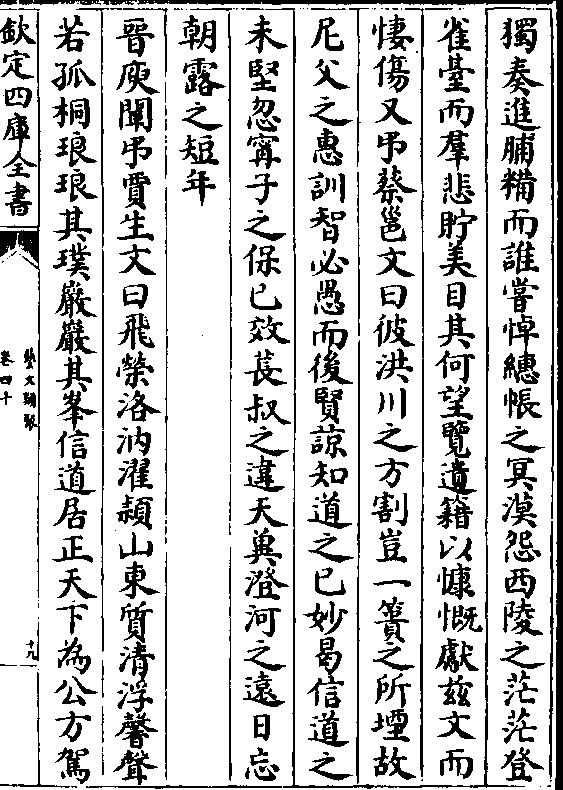 獨奏進脯糒而誰嘗悼繐帳之冥漠怨西陵之茫茫登
雀臺而羣悲貯美目其何望覽遺籍以慷慨獻兹文而
悽傷又弔蔡邕文曰彼洪川之方割豈一簣之所堙故
尼父之惠訓智必愚而後賢諒知道之已妙曷信道之
未堅忽甯子之保已效萇叔之違天兾澄河之遠日忘
朝露之短年
晉庾闡弔賈生文曰飛榮洛汭濯頴山東質清浮馨聲
若孤桐琅琅其璞巖巖其峯信道居正天下為公方駕
欽定四庫全書
藝文類聚
卷四十
十九